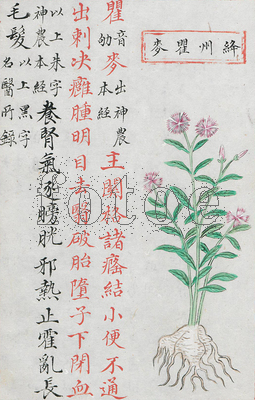 絳州瞿麥
瞿音劬麥出神農本經主關格諸癃結小便不通
出刺决癰腫明目去翳破胎墮子下閉血
以上朱字神農本經養腎氣逐膀胱邪熱止霍亂長
毛髮以上黑字名醫所錄